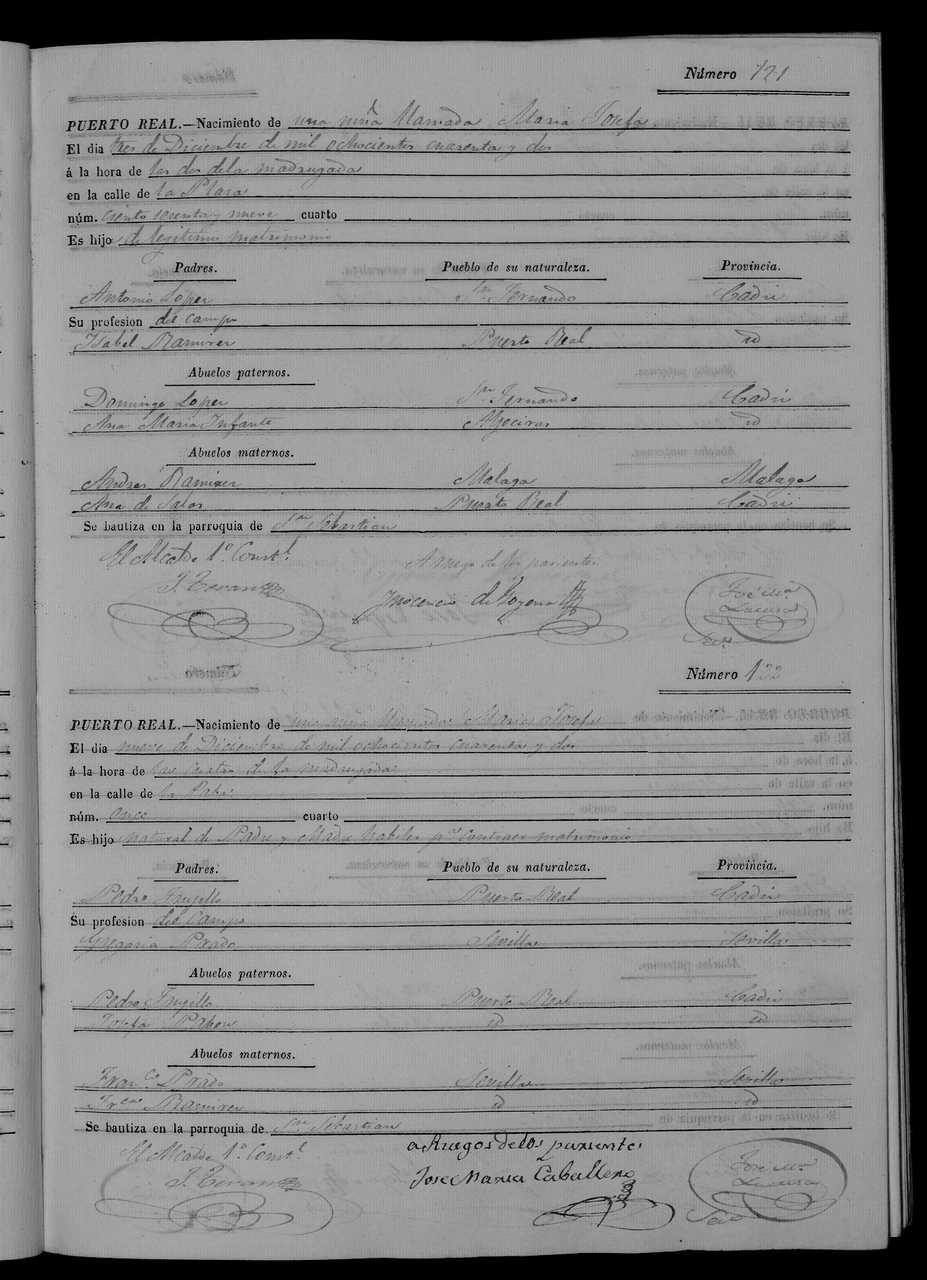 Número 121
PUERTO REAL.—Nacimiento de una niña llamada Maria Josefa
El dia tres de Diciembre de mil ochocientos cuarenta y dos
á la hora de las dos de la madrugada
en la calle de la Plaza
núm. ciento sesenta y nueve cuarto
Es hijo de legitimo matrimonio
Padres. Pueblo de su naturaleza. Provincia.
Antonio Lopez Sn. Fernando Cadiz
Su profesion del campo
Isabel Ramirez Puerto Real id
Abuelos paternos.
Domingo Lopez Sn. Fernando Cadiz
Ana Maria Infante Algeciras id
Abuelos maternos.
Andres Ramirez Malaga Malaga
Ana de Salos Puerto Real Cadiz
Se bautiza en la parroquia de Sn. Sebastian
El Alcalde 1º. Constl. A ruego de los parientes
J. Teran Inocencio de José Ma.
Número 122
PUERTO REAL.—Nacimiento de una niña llamada Maria Josefa
El dia nueve de Diciembre de mil ochocientos cuarenta y dos
á la hora de las cuatro de la madrugada
en la calle de la
núm. once cuarto
Es hijo natural de Padre y Madre habiles pa. contraer matrimonio
Padres. Pueblo de su naturaleza. Provincia.
Pedro Trugillo Puerto Real Cadiz
Su profesion del Campo
Gregoria Prado Sevilla Sevilla
Abuelos paternos.
Pedro Trugillo Puerto Real Cadiz
Josefa Pabon id id
Abuelos maternos.
Franco. Prado Sevilla Sevilla
Frca. Ramirez id id
Se bautiza en la parroquia de Sn. Sebastian
El Alcalde 1º. Constl. a Ruegos de los parientes José Ma.
J. Teran Jose Maria Caballero